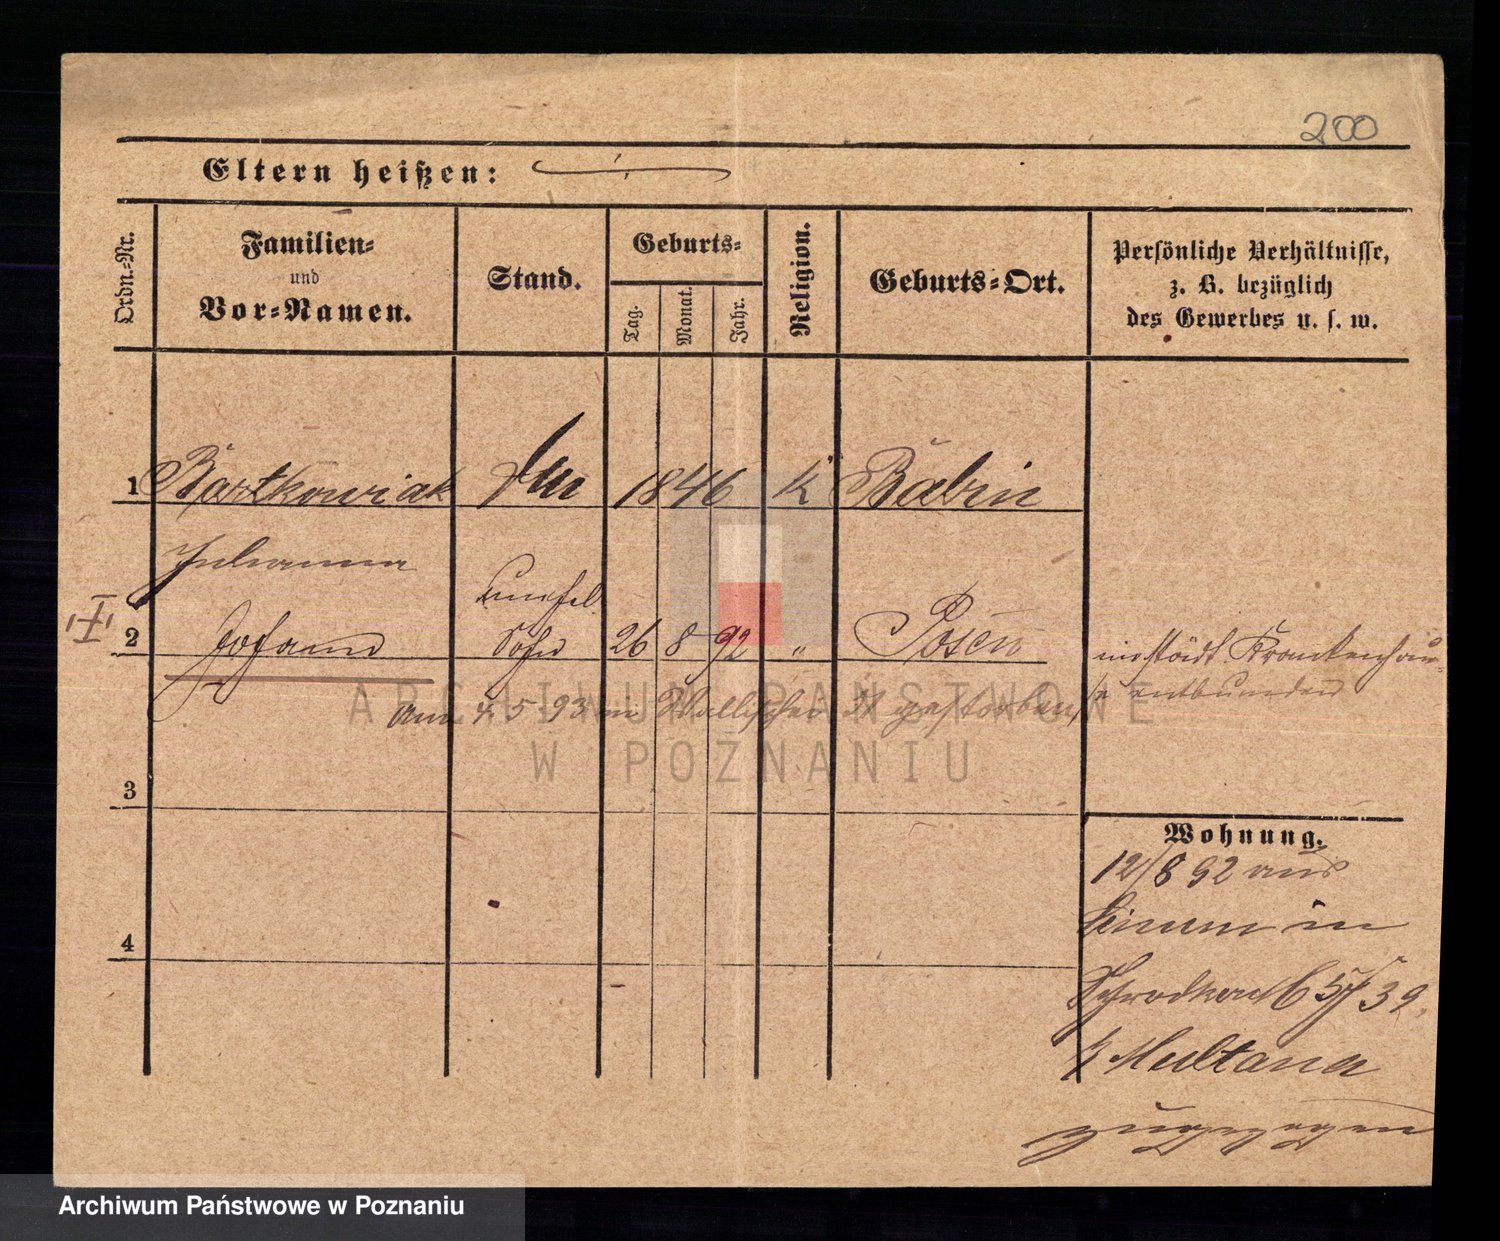 200
Eltern heißen:
Ordn.-Nr.
Familien- und Vor-Namen.
Stand.
Geburts-
Tag.
Monat.
Jahr.
Religion.
Geburts-Ort.
Persönliche Verhältnisse,
z. B. bezüglich
des Gewerbes u. s. w.
1 Bartkowiak 1846 K Babin
Julianna
unehel
2 Johann Sohn 26 8 92 " Posen
im städt. Krankenhau-
se entbunden
am 4. 5. 93 in gestorben
3
Wohnung.
12/8 92 aus
in
Schrodka 39
b/ Multana
zugezogen
4
ARCHIWUM PAŃSTWOWE
W POZNANIU
Archiwum Państwowe w Poznaniu